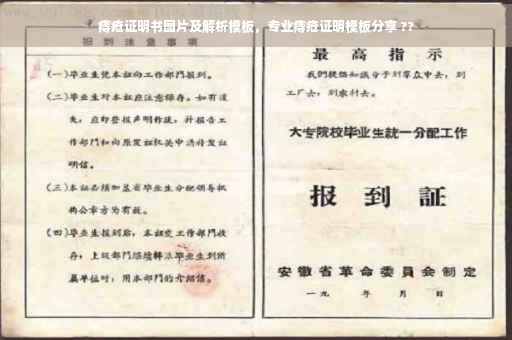 痔疮证明书图片及解析模板，专业痔疮证明模板分享 ??
报到注意事项
(一) 毕业生凭本证向工作部门报到。
(二) 毕业生对本证应注意保存。如有遗
失，应即登报声明作废，并报告工
作部门和向原发证机关申请补发证
明信。
(三) 本证必须加盖省毕业生分配领导机
构公章方为有效。
(四) 毕业生报到后，本证交工作部门收
存；上级部门继续转派毕业生到所
属单位时，用本部门的介绍信。
最高指示
我们提倡知识分子到群众中去，到
工厂去，到农村去。
大专院校毕业生统一分配工作
报到证
安徽省革命委员会制定
一九 年 月 日